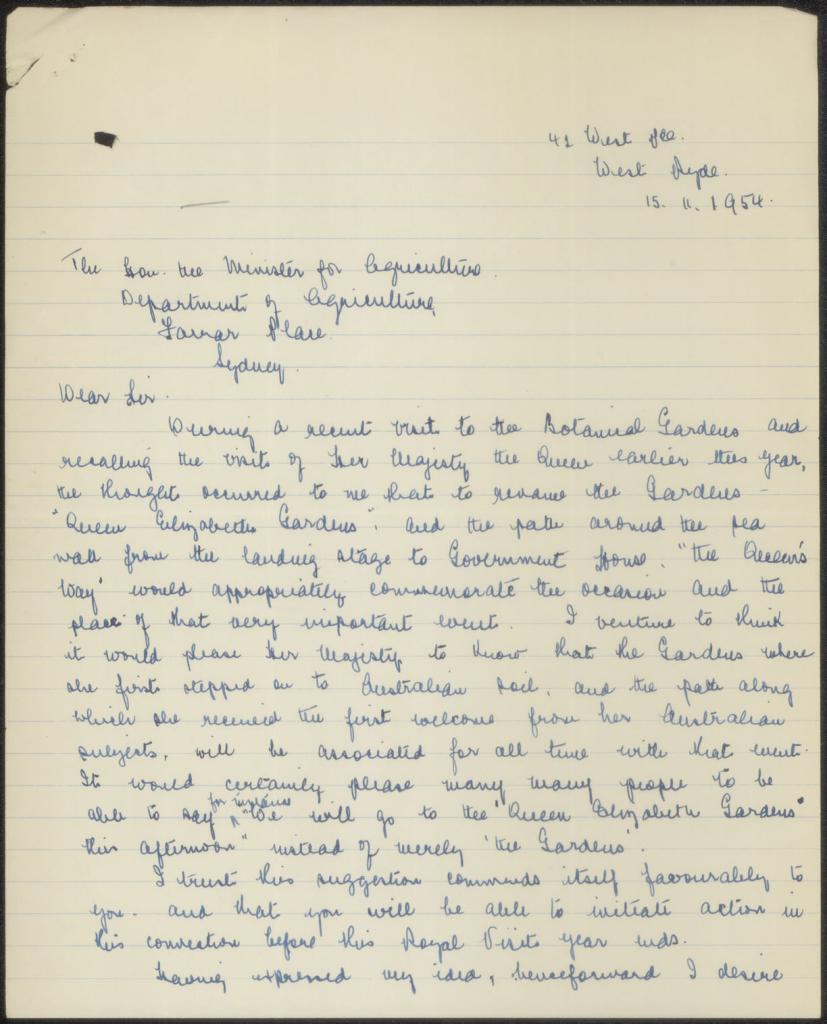 42 West Pde.
West Ryde.
15. 11. 1954.
The Hon. the Minister for Agriculture.
Department of Agriculture,
Farrar Place.
Sydney.
Dear Sir.
During a recent visit to the Botanical Gardens and
recalling the visit of Her Majesty the Queen earlier this year,
the thought occurred to me that to rename the Gardens -
"Queen Elizabeth Gardens". and the path around the sea
wall from the landing stage to Government House. "the Queen's
Way" would appropriately commemorate the occasion and the
place of that very important event. I venture to think
it would please Her Majesty to know that the Gardens where
she first stepped on to Australian soil, and the path along
which she received the first welcome from her Australian
subjects, will be associated for all time with that event.
It would certainly please many many people to be
able to say for instance "We will go to the "Queen Elizabeth Gardens"
this afternoon" instead of merely 'the Gardens'.
I trust this suggestion commends itself favourably to
you. and that you will be able to initiate action in
this connection before this Royal Visit year ends.
Having expressed my idea, henceforward I desire